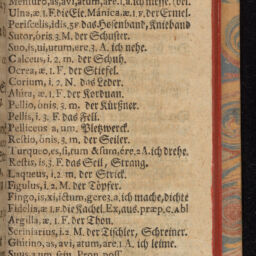 Mensuro, as, avi, atum, are. 1. a. ich messe.
Ulna, æ. 1. F. die Ele. Mánica. æ. 1. F. der Ermel.
Periscelis, idis, 3. F. das Hosenband, Knieband
Sutor, óris. 3. M. der Schuster.
Suo, is, ui, utum, ere. 3. A. ich nehe.
Calceus, i. 2. m. der Schuh.
Ocrea, æ. 1. F. der Stiefel.
Corium, i. 2. N. das Leder.
Alúta, æ. 1. F. der Korduan.
Pellio, ónis. 3. m. der Kürßner.
Pellis, i. 3. F. das Fell.
Pelliceus a, um. Peltzwerck.
Restio, ónis, 3. m. der Seiler.
Turqueo, es, si, tum & sum, ére. 2. A. ich drehe.
Restis, is. 3. F. das Seil, Strang.
Laqueus, i. 2. m. der Strick.
Figulus, i. 2. M. der Töpfer.
Fingo, is, xi, ictum, gere 3. a. ich mache, dichte
Fidelia, æ 1. F. die Kachel. Ex, aus. præp. c. Abl
Argilla, æ. 1. F. der Thon.
Scriniarius, i. 2 M. der Tischler, Schreiner.
Glutino, as, avi, atum, are. 1 A. ich leime.
Suus, a um, sein. Pron. poss.